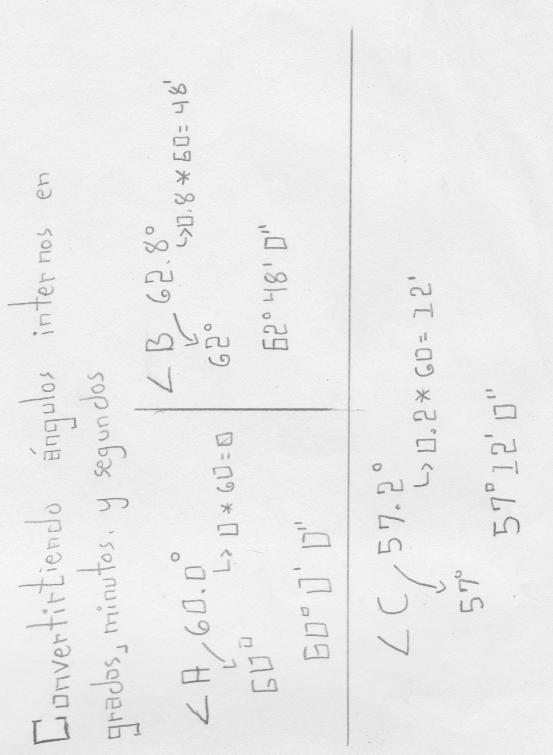 Convertirtiendo ángulos internos en
grados, minutos, y segundos
∠A 60.0°
↳ 0*60=0
60°
60° 0' 0"
∠B 62.8°
↳0.8*60=48'
62°
62° 48' 0"
∠C 57.2°
↳0.2*60=12'
57°
57° 12' 0"